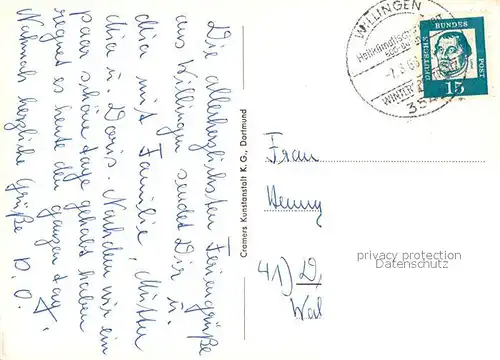 Die allerherzlichsten Feriengrüße
aus Willingen sendet Dir u.
dia mit Familie, Mutter
dia u. Doris. Nachdem wir ein
paar schöne Tage gehabt haben
regnet es heute den ganzen Tag.
Nochmals herzliche Grüße D. O.
Cramers Kunstanstalt K. G., Dortmund
WILLINGEN
Heilklimatischer
35
DEUTSCHE BUNDESPOST
15
Frau
Henny
41) D.
Wal
privacy protection
Datenschutz